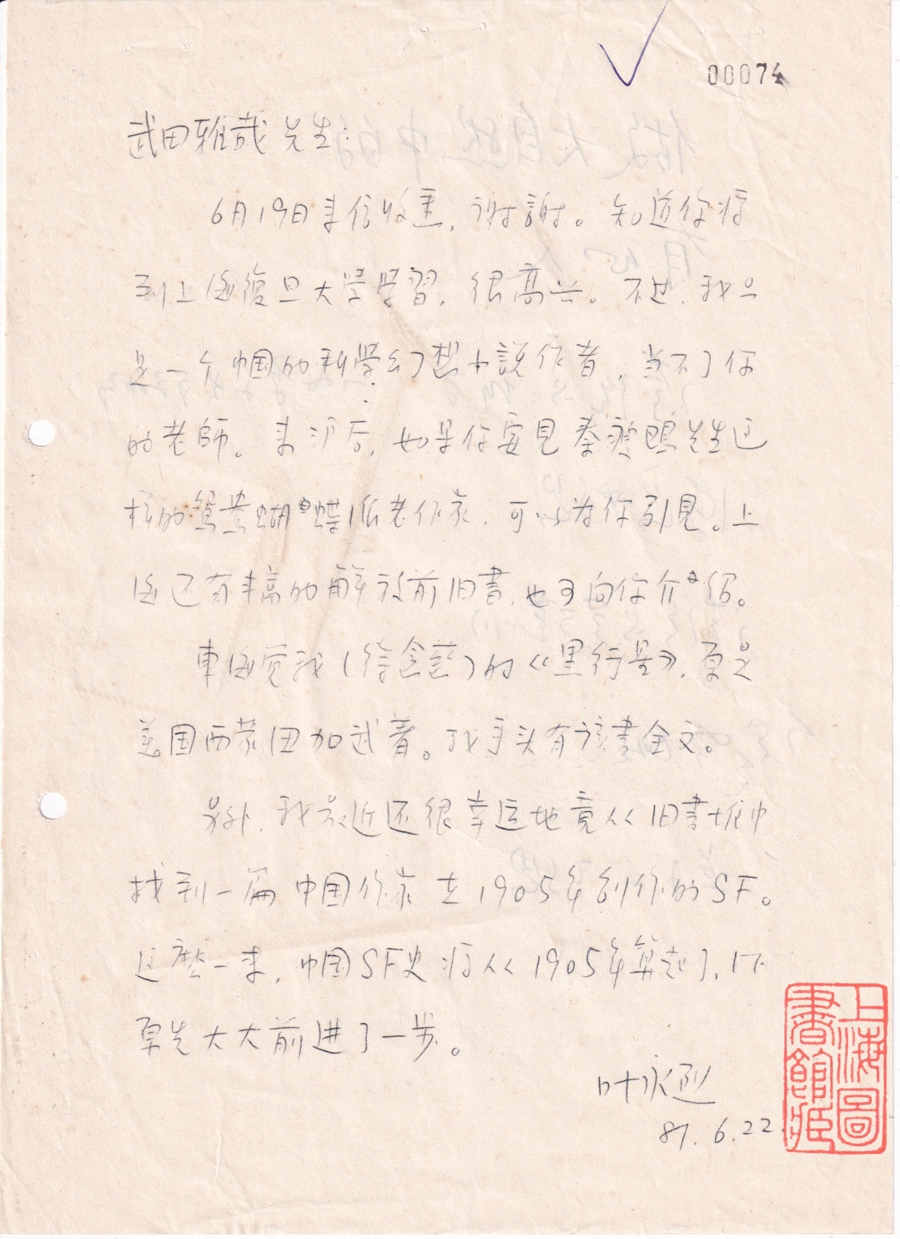 00074
武田雅哉先生：
6月19日来信收悉，谢謝。知道你将
到上海復旦大学学習，很高兴。不过，我只
是一个中国的科學幻想小説作者，当不了你
的老師。来沪后，如果你要見秦瘦鷗先生这
样的鴛鴦蝴蝶派老作家，可以为你引見。上
海还有丰富的解放前旧書，也可向你介绍。
東海覚我（徐念慈）的《黑行星》，原是
美国西蒙紐加武著。我手头有该書全文。
另外，我最近还很幸运地竟从旧書堆中
找到一篇中国作家在1905年创作的SF。
这麽一来，中国SF史将从1905年算起了，比
原先大大前进了一步。
叶永烈
81.6.22.
上海圖
書館藏